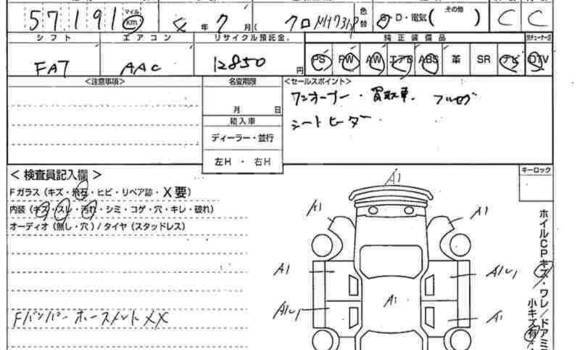 57191 マイル km 4年 7月 クロ 色替 G・D・電気（その他） C C
シフト エアコン リサイクル預託金 純正装備品
FAT AAC 12850円 PS PW AW エアB ABS 革 SR ナビ TV
＜注意事項＞ 名変期限 ＜セールスポイント＞
月 日 ワンオーナー・買取車 フルセグ
輸入車 シートヒーター
ディーラー・並行
左H・右H
＜検査員記入欄＞ キーロック
Fガラス（キズ・飛石・ヒビ・リペア跡・X要）
内装（キズ・スレ・汚れ・シミ・コゲ・穴・キレ・破れ）
オーディオ（無し・穴）/タイヤ（スタッドレス）
A1
A1 A1
A1 AU1
AU1 A1 A1
Fバンパー ホースメントXX
ホイルCPキズ・ワレ/ドアミ
小キズ有